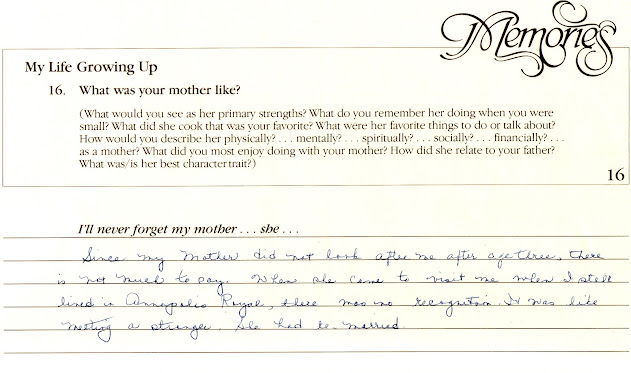 Memories
My Life Growing Up
16. What was your mother like?
(What would you see as her primary strengths? What do you remember her doing when you were
small? What did she cook that was your favorite? What were her favorite things to do or talk about?
How would you describe her physically? . . . mentally? . . . spiritually? . . . socially? . . . financially? . . .
as a mother? What did you most enjoy doing with your mother? How did she relate to your father?
What was/is her best character trait?)
16
I'll never forget my mother . . . she . . .
Since my Mother did not look after me after age three, there
is not much to say. When she came to visit me when I still
lived in Annapolis Royal, there was no recognition. It was like
meeting a stranger. She had re-married.